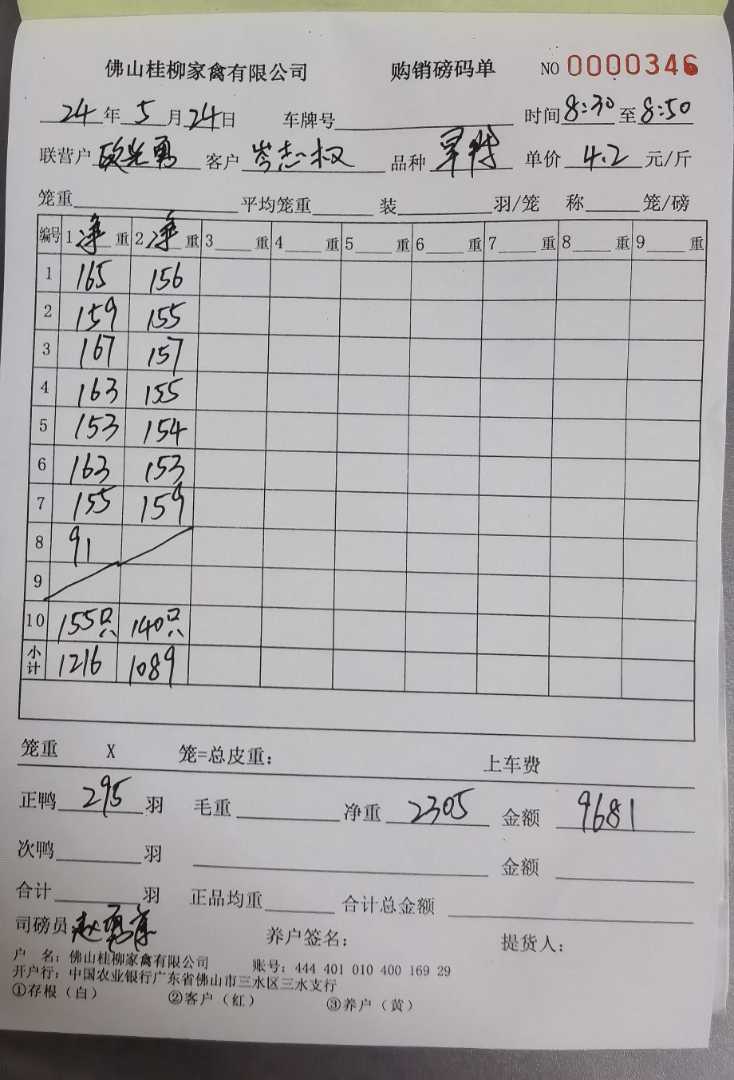 佛山桂柳家禽有限公司 购销磅码单 NO 0000346
24年5月24日 车牌号 时间8:30至8:50
联营户 勇 客户 岑志权 品种 单价 4.2 元/斤
笼重 平均笼重 装 羽/笼 称 笼/磅
编号 1净重 2净重 3 重 4 重 5 重 6 重 7 重 8 重 9 重
1 165 156
2 159 155
3 167 157
4 163 155
5 153 154
6 163 153
7 155 159
8 91
9
10 155只 140只
小计 1216 1089
笼重 X 笼=总皮重: 上车费
正鸭 295 羽 毛重 净重 2305 金额 9681
次鸭 羽 金额
合计 羽 正品均重 合计总金额
司磅员 赵勇 养户签名: 提货人:
户 名: 佛山桂柳家禽有限公司 账号: 444 401 010 400 169 29
开户行: 中国农业银行广东省佛山市三水区三水支行
①存根(白) ②客户(红) ③养户(黄)